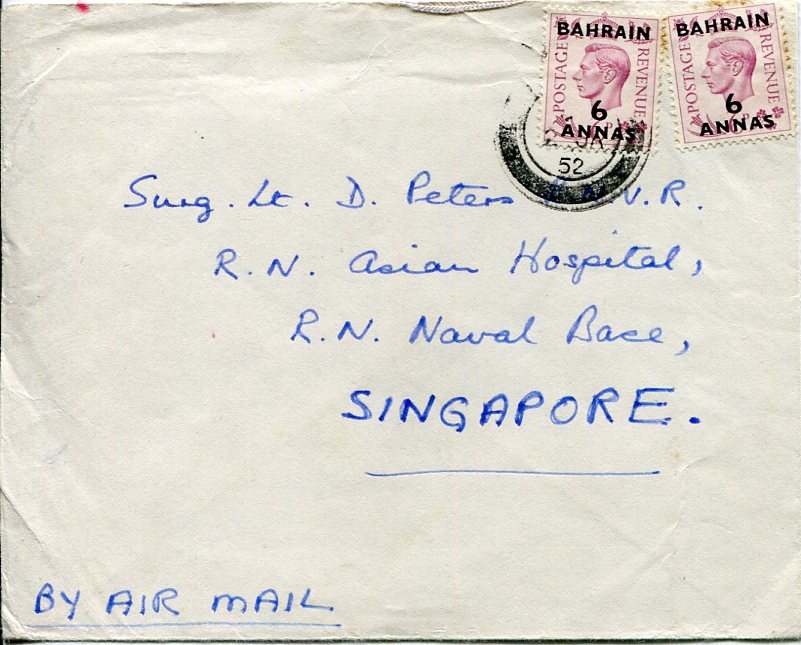 BAHRAIN
POSTAGE
REVENUE
6
ANNAS
BAHRAIN
POSTAGE
REVENUE
6
ANNAS
52
Surg. Lt. D. Peters R.N.V.R.
R.N. Asian Hospital,
R.N. Naval Base,
SINGAPORE.
BY AIR MAIL